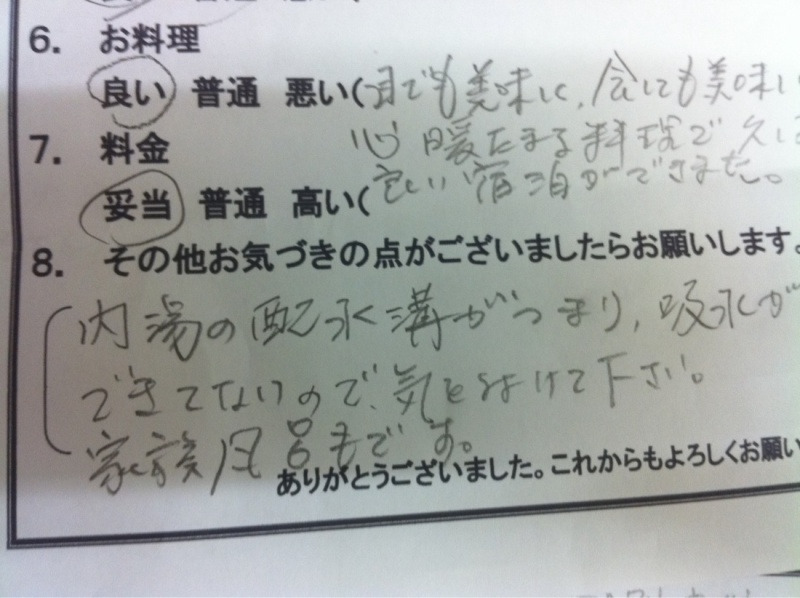 6. お料理
良い 普通 悪い(目でも美味しく、食にも美味し
7. 料金 心暖たまる料理で久し
妥当 普通 高い(良い宿泊ができました。
8. その他お気づきの点がございましたらお願いします。
内湯の配水溝がつまり、吸水が
できてないので、気を付けて下さい。
家族風呂もです。
ありがとうございました。これからもよろしくお願い